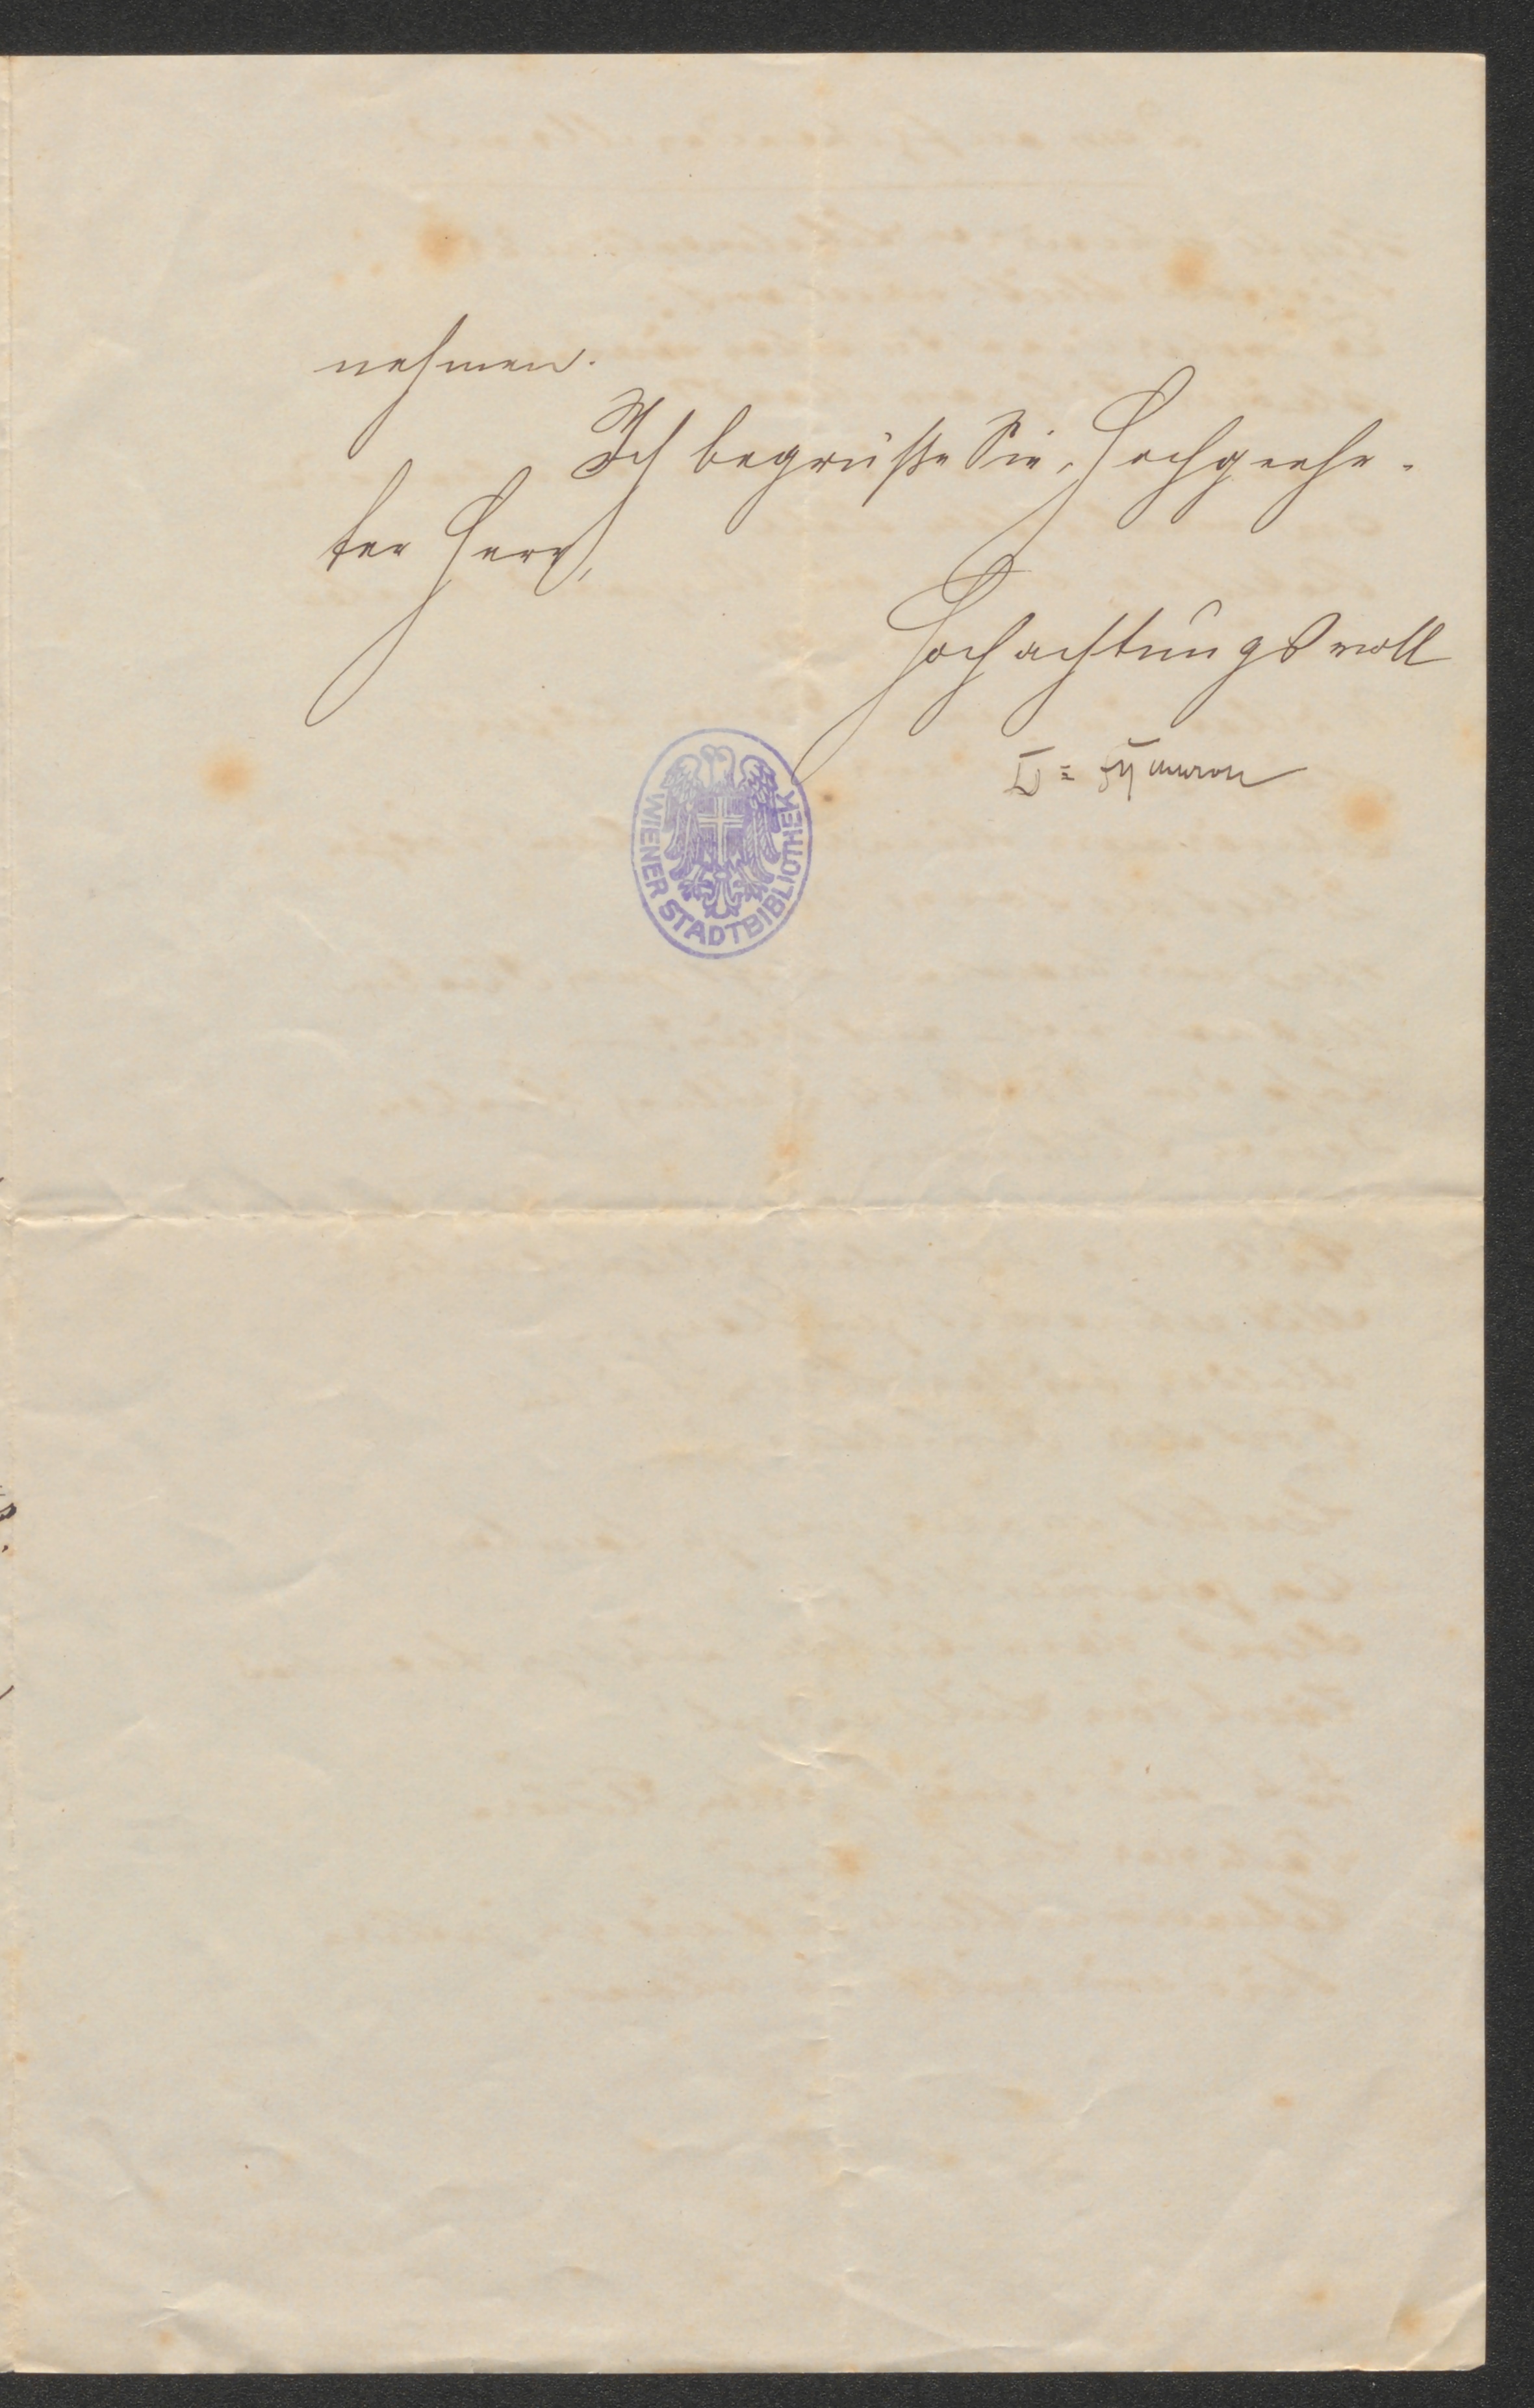 nehmen.
Ich begrüße Sie, hochgeehr-
ter Herr,
Hochachtungsvoll
WIENER STADTBIBLIOTHEK